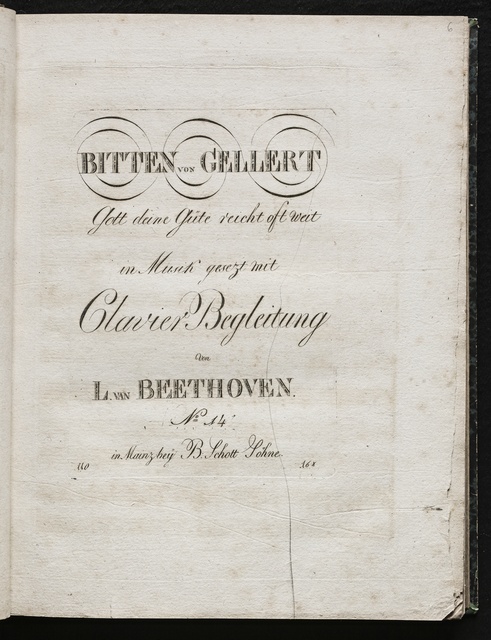 6
BITTEN VON GELLERT
Gott deine Güte reicht oft weit
in Musick gesezt mit
Clavier Begleitung
Von
L. VAN BEETHOVEN.
No 14
in Mainz beÿ B. Schott Söhne
110